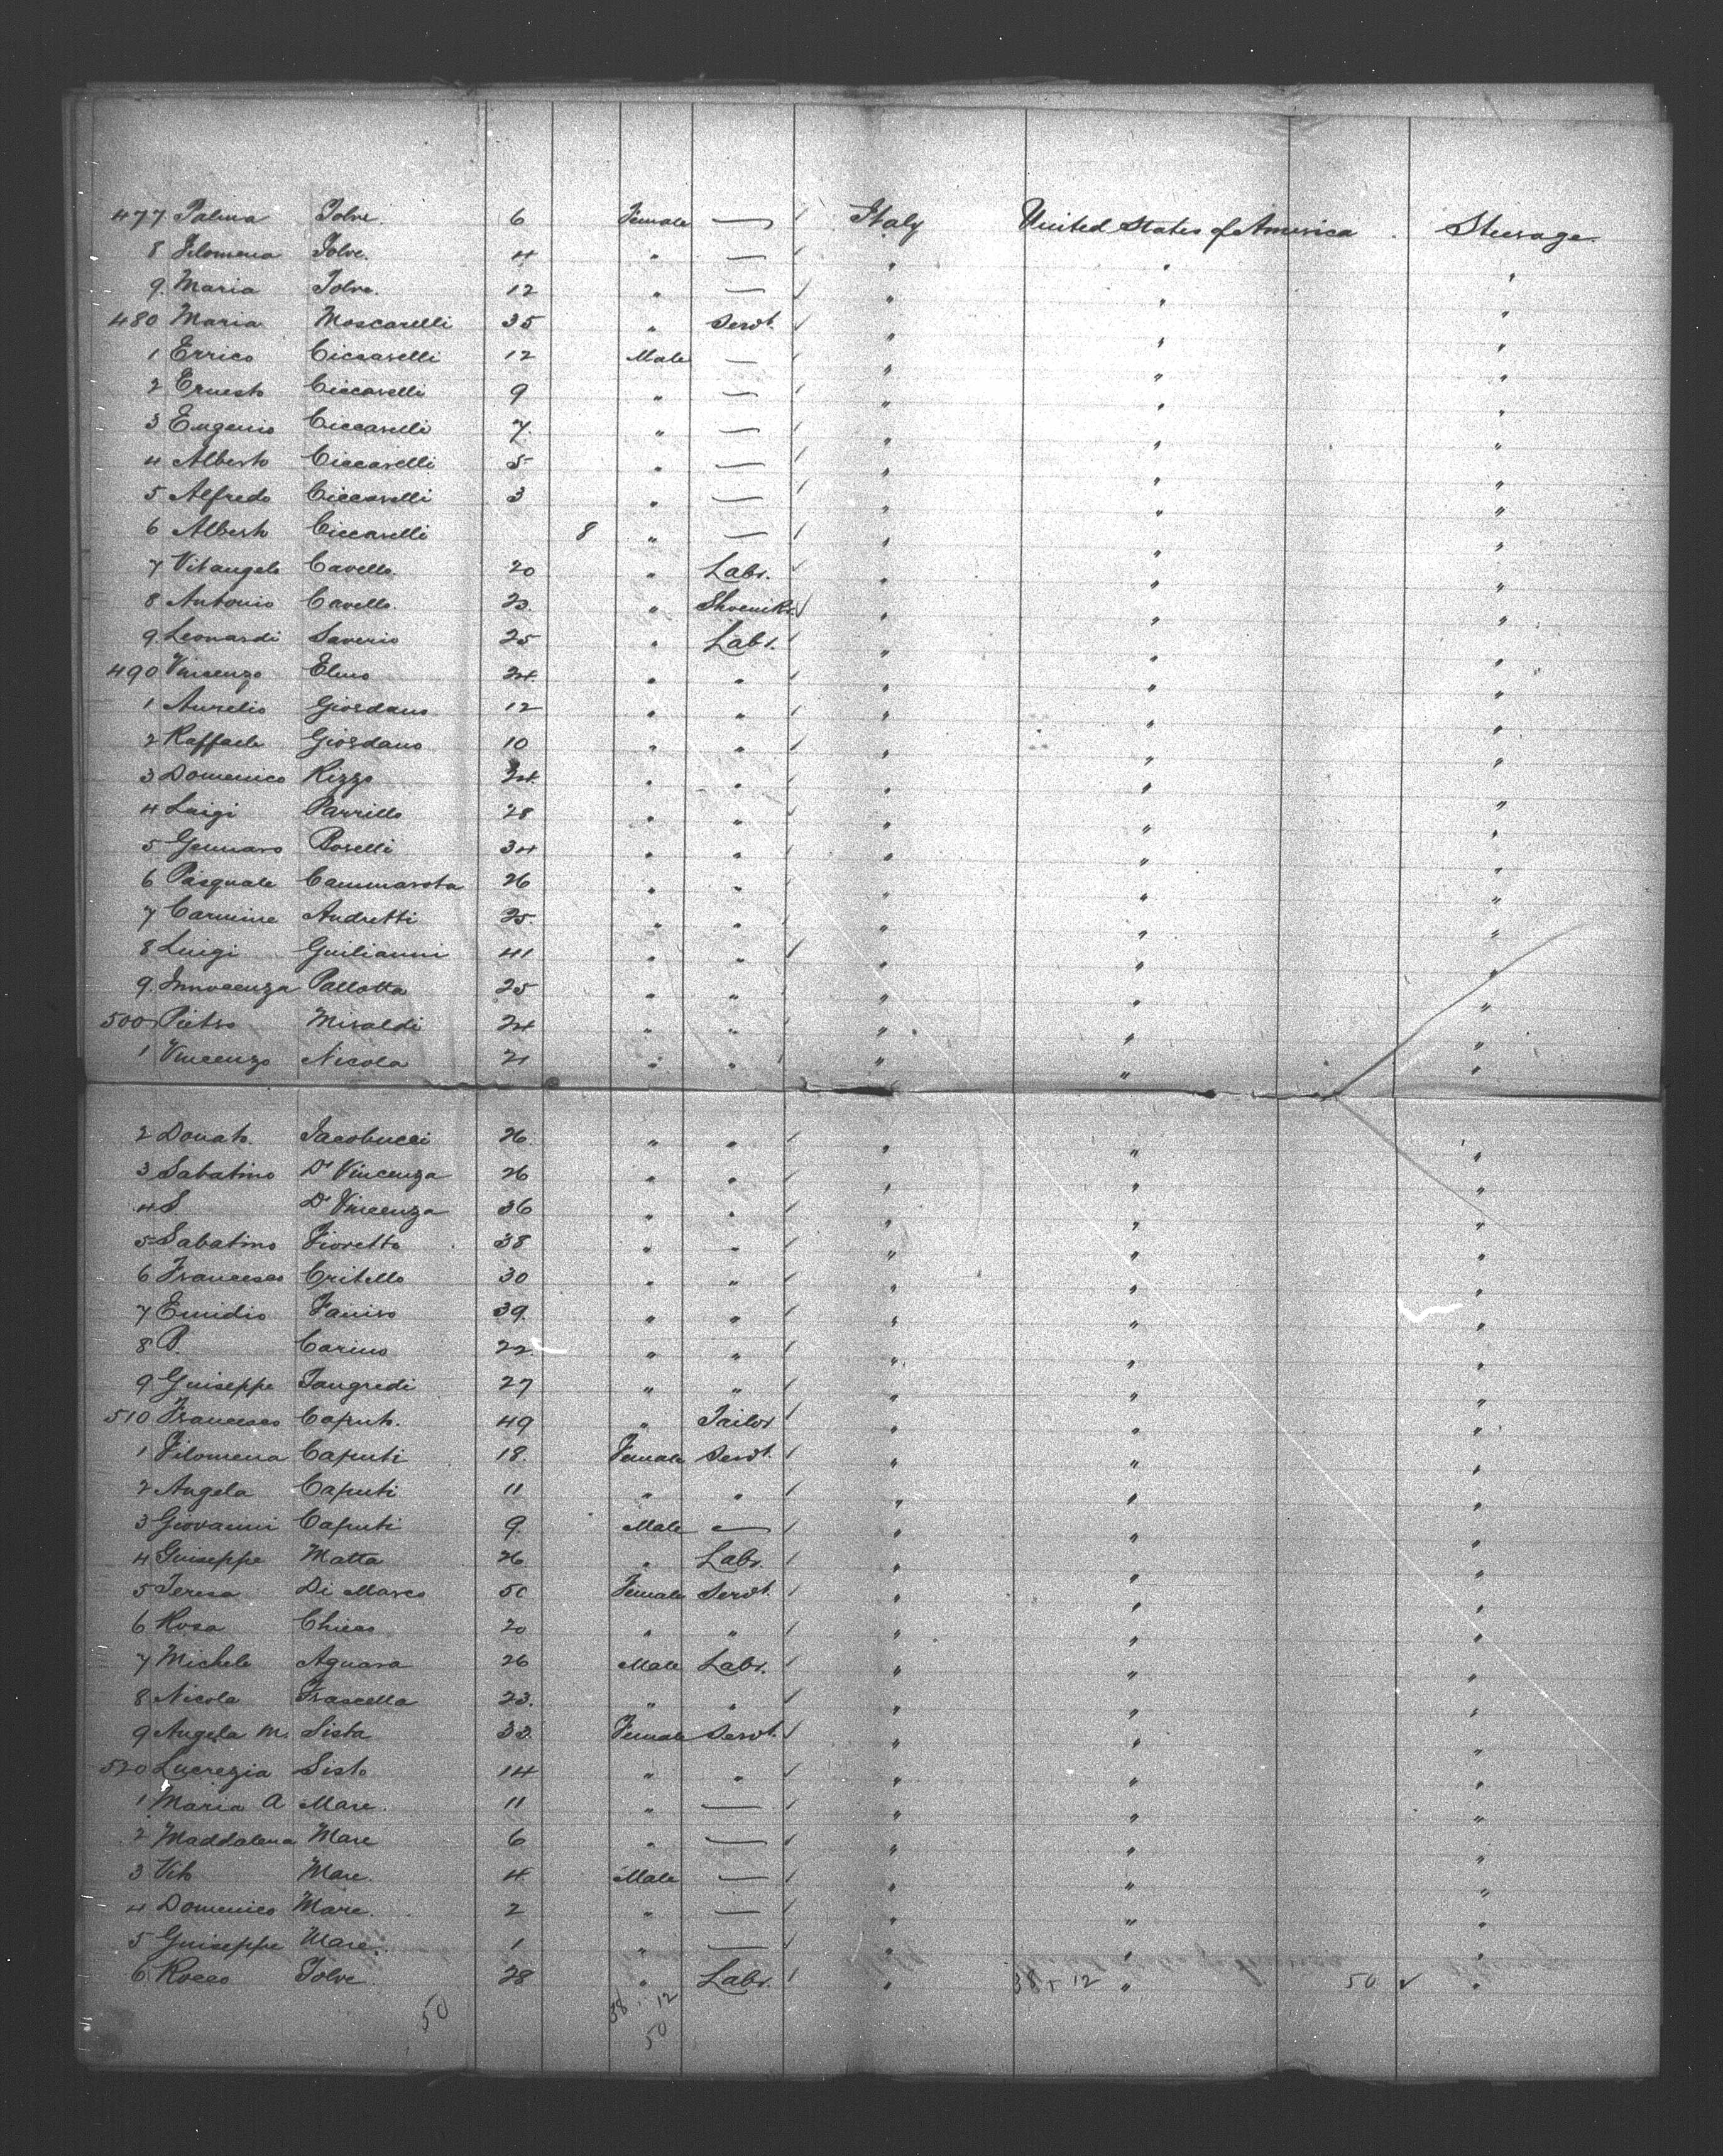 477 Palma Tolve. 6 Female — Italy United States of America. Steerage.
8 Filomena Tolve. 4 " — " " "
9. Maria Tolve. 12 " — " " "
480 Maria Moscarelli 35 " Servt. " " "
1 Errico Ciccarelli 12 Male — " " "
2 Ernesto Ciccarelli 9 " — " " "
3 Eugenio Ciccarelli 7. " — " " "
4 Alberto Ciccarelli 5 " — " " "
5 Alfredo Ciccarelli 3 " — " " "
6 Alberto Ciccarelli 8 " — " " "
7 Vitangelo Cavello. 20 " Labr. " " "
8 Antonio Cavello. 22. " Shoemkr. " " "
9. Leonardi Saverio 25 " Labr. " " "
490 Vincenzo Elmo 24. " " " " "
1 Aurelio Giordano 12 " " " " "
2 Raffaele Giordano 10 " " " " "
3 Domenico Rizzo 24. " " " " "
4 Luigi Parrillo 28 " " " " "
5 Gennaro Roselli 34 " " " " "
6 Pasquale Cammarota 26 " " " " "
7 Carmine Andretti 25. " " " " "
8 Luigi Guilianni 41 " " " " "
9. Innocenza Pallotta 25 " " " " "
500 Pietro Miraldi 24 " " " " "
1 Vincenzo Nicola 21 " " " " "
2 Donato. Jacobucci 26. " " " " "
3 Sabatino Di Vincenza 26 " " " " "
4 S Di Vincenza 36 " " " " "
5 Sabatino Fioretto 38 " " " " "
6 Francesco Critello 30 " " " " "
7 Emidio 39. " " " " "
8 P. Carino 22 " " " " "
9 Guiseppe Tangredi 27 " " " " "
510 Francesco Caputo. 49 " Tailor " " "
1 Filomena Caputi 18. Female Servt. " " "
2 Angela Caputi 11 " " " " "
3 Giovanni Caputi 9. Male — " " "
4 Guiseppe Matta 26 " Labr. " " "
5 Teresa Di Marco 50 Female Servt. " " "
6 Rosa Chicco 20 " " " " "
7 Michele Aguara 26 Male Labr. " " "
8 Nicola Frascella 23. " " " " "
9 Angela M. Sisto 33. Female Servt. " " "
520 Lucrezia Sisto 14 " " " " "
1 Maria A Mare. 11 " — " " "
2 Maddalena Mare 6 " — " " "
3 Vito Mare. 4. Male — " " "
4 Domenico Mare. 2 " — " " "
5 Guiseppe Mare. 1 " — " " "
6 Rocco Tolve. 28 " Labr. " 38 + 12 " 50 "
50 38 + 12
50